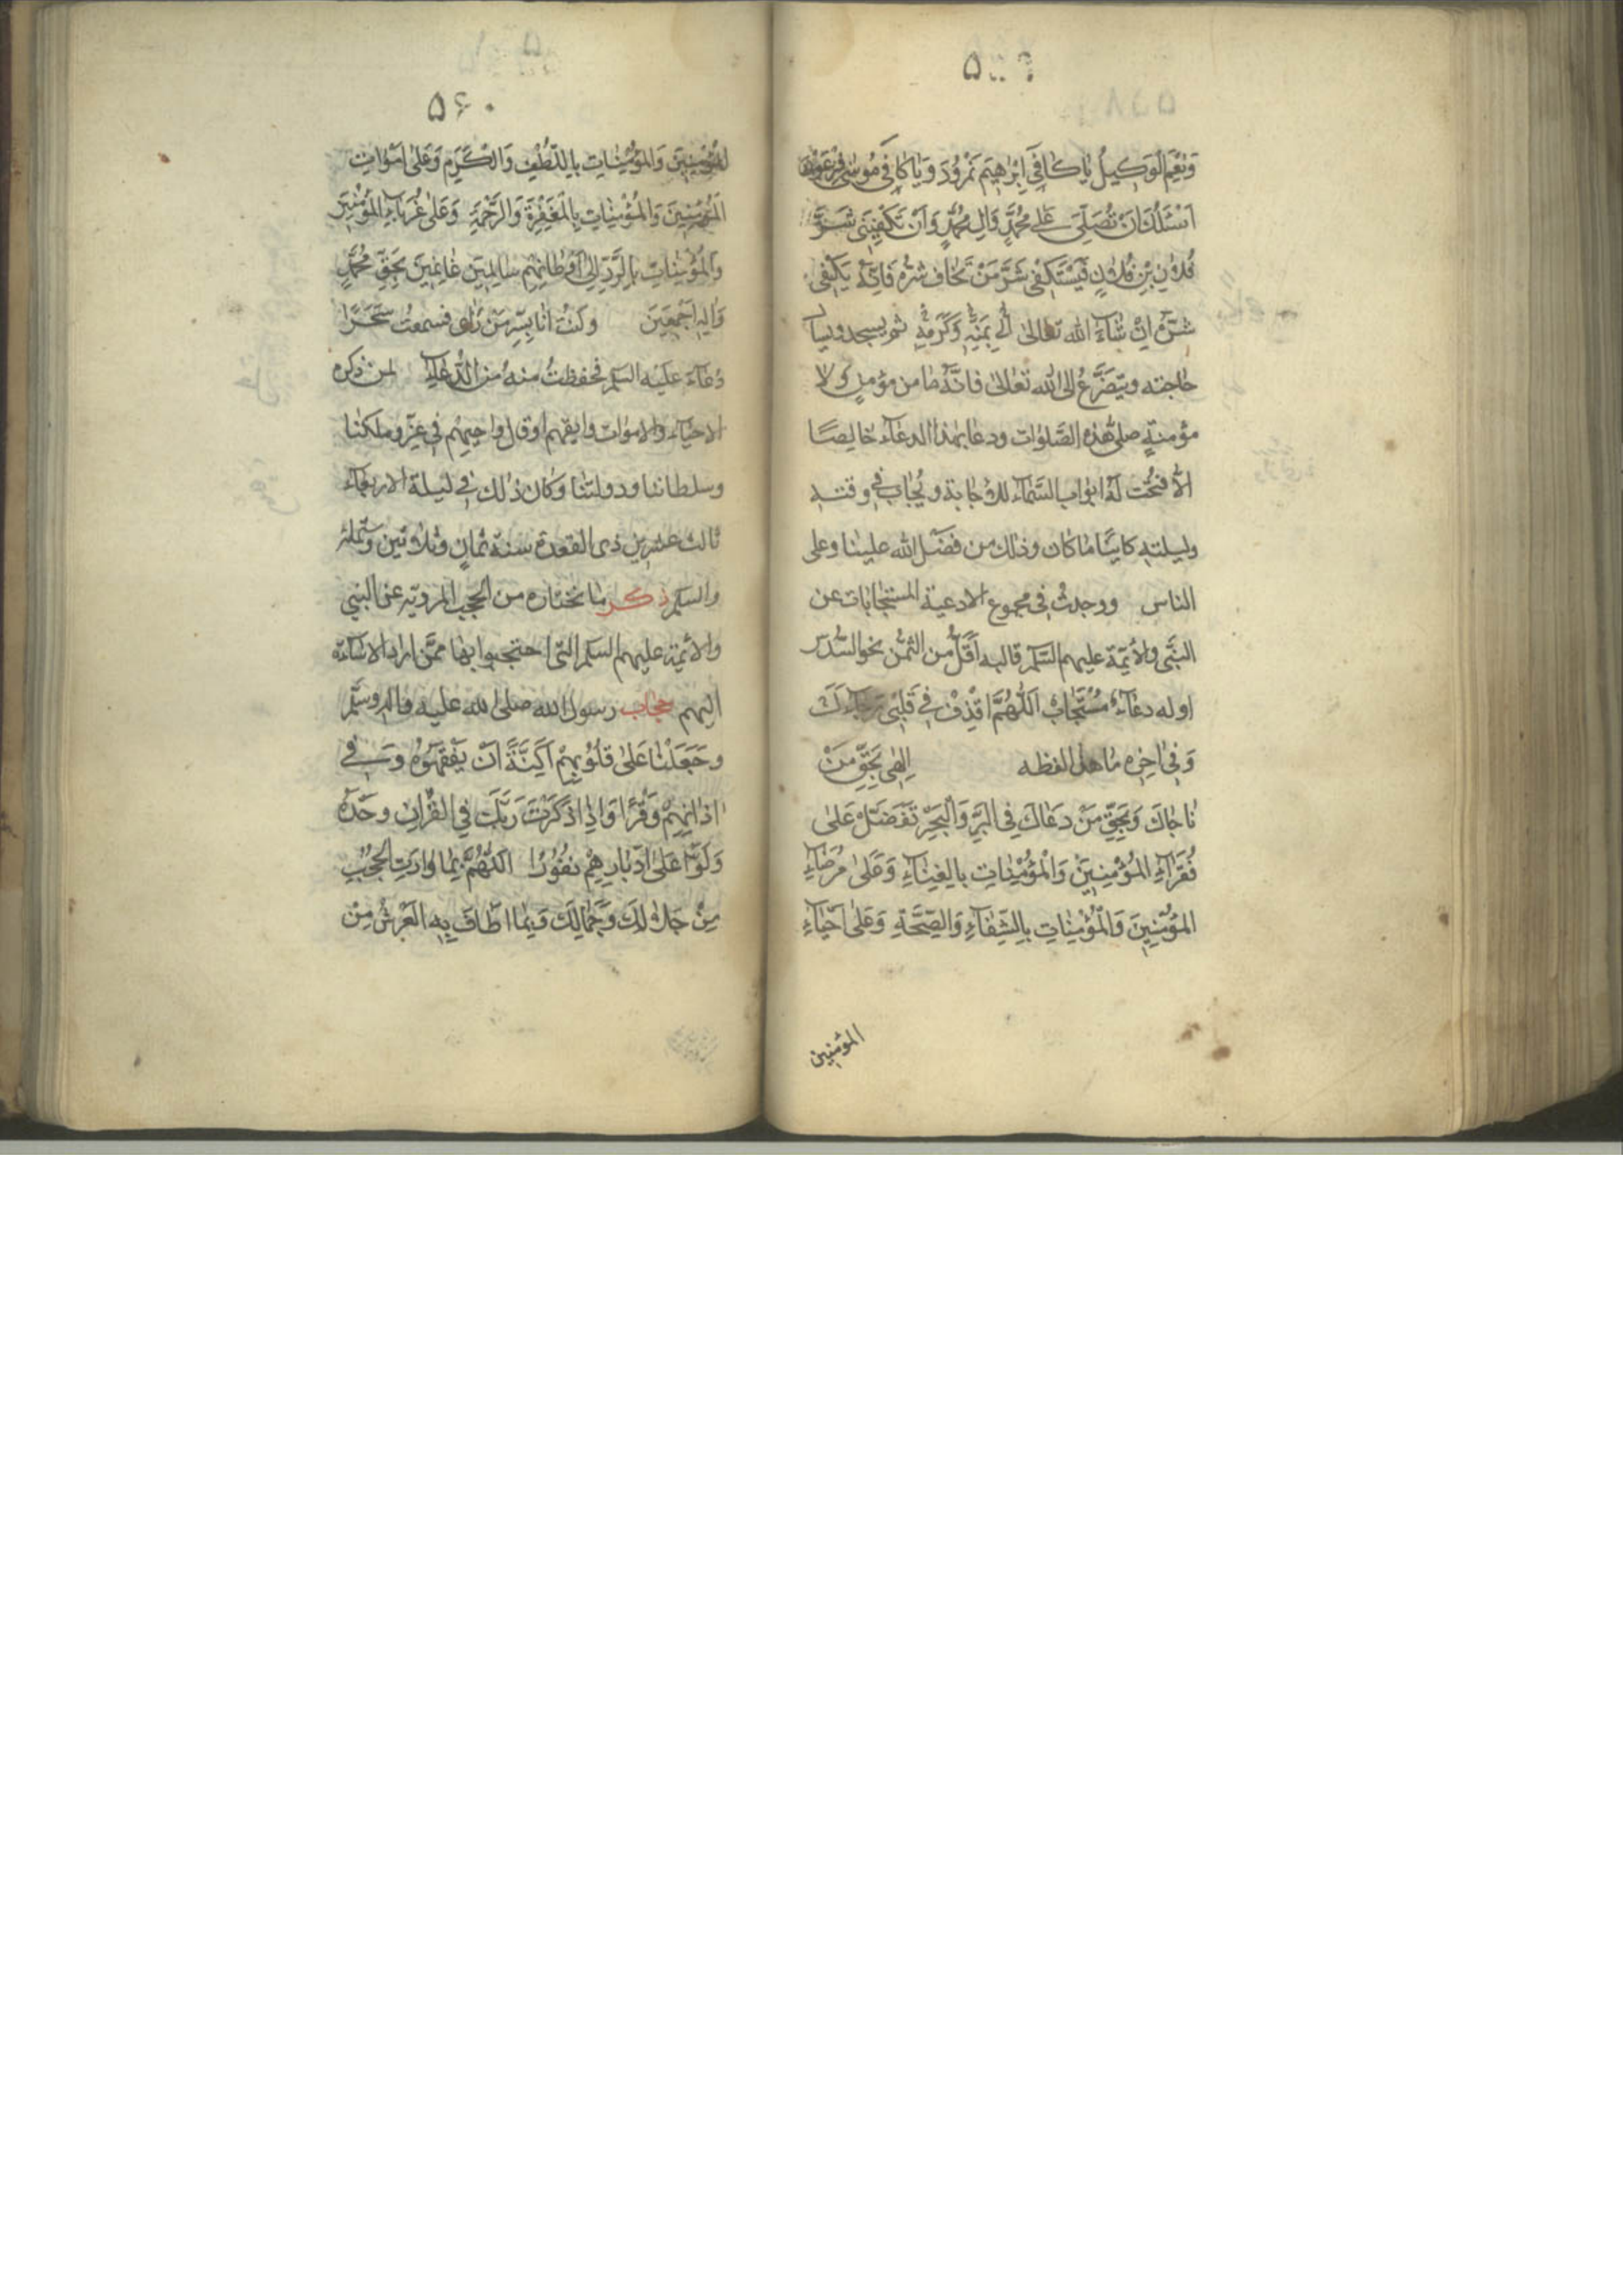 ۵۵۹
وَنِعْمَ الْوَكِيلُ يَا كَافِيَ اِبْرٰهِيمَ نَمْرُودَ وَيَا كَافِيَ مُوسٰى فِرْعَوْنَ
اَسْئَلُكَ اَنْ تُصَلِّيَ عَلٰى مُحَمَّدٍ وَاٰلِ مُحَمَّدٍ وَاَنْ تَكْفِيَنِي شَرَّ
فُلَانِ بْنِ فُلَانٍ فَيَسْتَكْفِي شَرَّ مَنْ تَخَافُ شَرَّهُ فَاِنَّهُ يَكْفِي
شَرَّهُ اِنْ شَاءَ الله تعالى بِمَنِّهِ وَكَرَمِهِ ثم يسجد ويسأل
حاجته ويتضرع الى الله تعالى فانه ما من مؤمن ولا
مؤمنة صلى هذه الصلوات ودعا بهذا الدعاء خالِصًا
الا فتحت له ابواب السماء للاجابة ويُجاب في وقته
وليلته كائنا ما كان وذلك من فضل الله علينا وعلى
الناس ووجدت في مجموع الادعية المستجابات عن
النبي والائمة عليهم السلم قالبه اقل من الثمن نحو السدس
اوله دعاء مستجاب اَللّٰهُمَّ اقْذِفْ فِي قَلْبِي رَجَاءَكَ
وَفي اخره ما هذا لفظه اِلٰهِي بِحَقِّ مَنْ
نَاجَاكَ وَبِحَقِّ مَنْ دَعَاكَ فِي الْبَرِّ وَالْبَحْرِ تَفَضَّلْ عَلٰى
فُقَرَاءِ الْمُؤْمِنِينَ وَالْمُؤْمِنَاتِ بِالْغِنَاءِ وَعَلٰى مَرْضَاءِ
الْمُؤْمِنِينَ وَالْمُؤْمِنَاتِ بِالشِّفَاءِ وَالصِّحَّةِ وَعَلٰى اَحْيَاءِ
المؤمنين
۵۶۰
الْمُؤْمِنِينَ وَالْمُؤْمِنَاتِ بِاللُّطْفِ وَالْكَرَمِ وَعَلٰى اَمْوَاتِ
الْمُؤْمِنِينَ وَالْمُؤْمِنَاتِ بِالْمَغْفِرَةِ وَالرَّحْمَةِ وَعَلٰى غُرَبَاءِ الْمُؤْمِنِينَ
وَالْمُؤْمِنَاتِ بِالرَّدِّ اِلٰى اَوْطَانِهِمْ سَالِمِينَ غَانِمِينَ بِحَقِّ مُحَمَّدٍ
وَاٰلِهِ اَجْمَعِينَ وكنت انا بسر من رأى فسمعت سَحَرًا
دعاءه عليه السلم فحفظت منه من الدعاء لمن ذكره
الاحياء والاموات وابقهم او قال واحيهم في عزنا وملكنا
وسلطاننا ودولتنا وكان ذلك في ليلة الاربعاء
ثالث عشرين ذى القعدة سنة ثمان وثلاثين وستمائة
والسلم ذكر ما نختاره من الحجب المروية عن النبي
والائمة عليهم السلم التي احتجبوا بها ممن اراد الاساءة
اليهم حجاب رسول الله صلى الله عليه واله وسلم
وَجَعَلْنَا عَلٰى قُلُوبِهِمْ اَكِنَّةً اَنْ يَفْقَهُوهُ وَ فِي
اٰذَانِهِمْ وَقْرًا وَاِذَا ذَكَرْتَ رَبَّكَ فِي الْقُرْاٰنِ وَحْدَهُ
وَلَّوْا عَلٰى اَدْبَارِهِمْ نُفُورًا اَللّٰهُمَّ بِمَا وَارَتِ الْحُجُبُ
مِنْ جَلَالِكَ وَجَمَالِكَ وَبِمَا اَطَافَ بِهِ الْعَرْشُ مِنْ